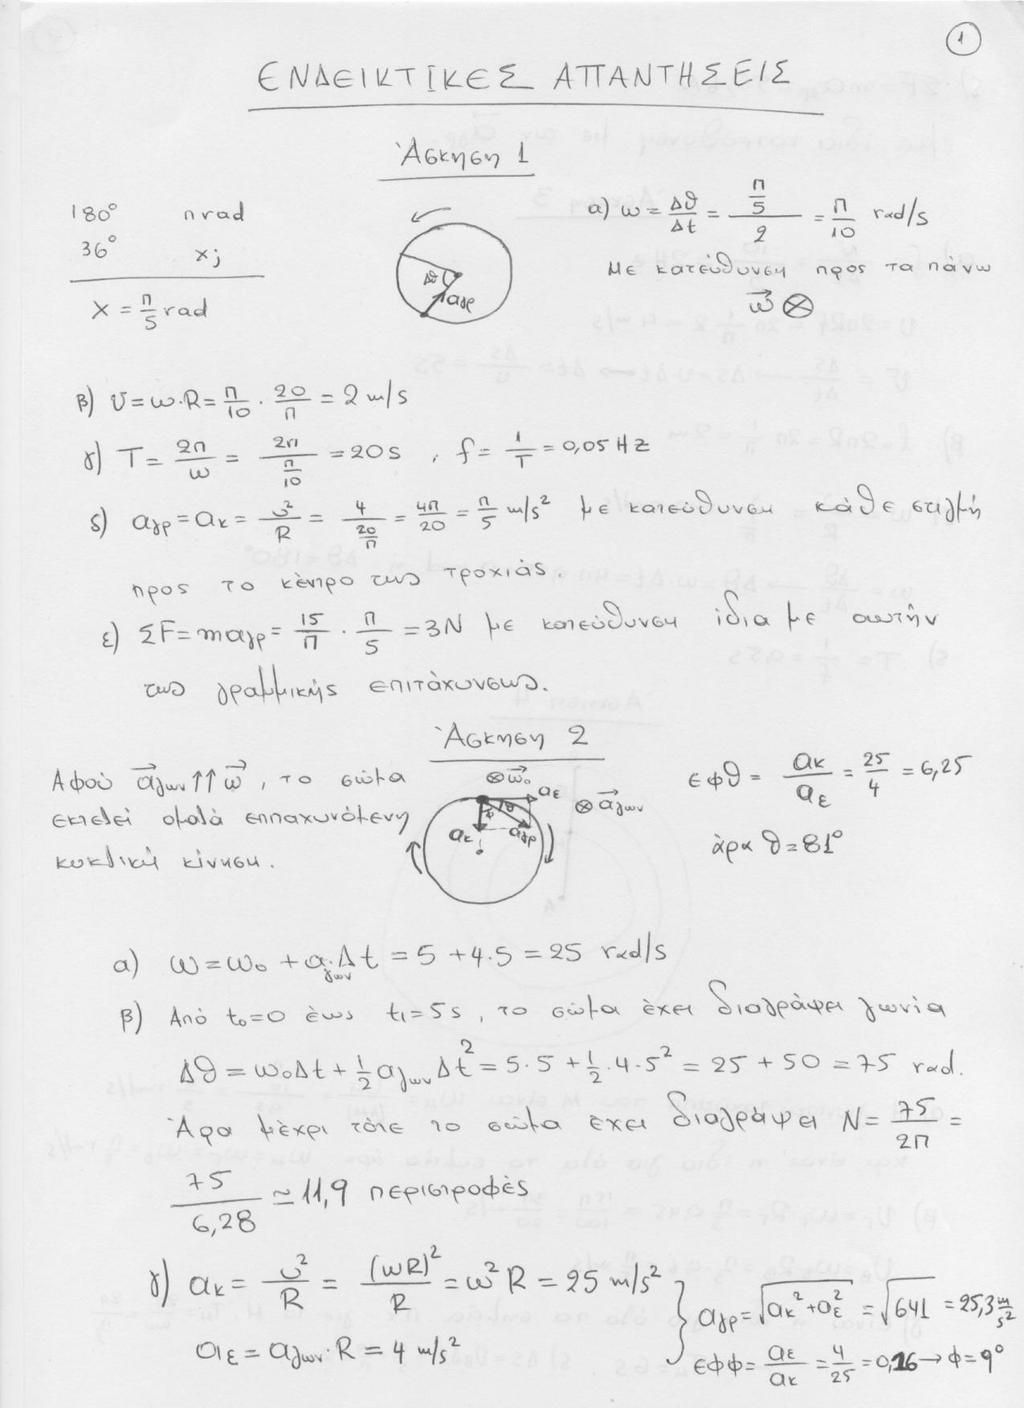 1
ΕΝΔΕΙΚΤΙΚΕΣ ΑΠΑΝΤΗΣΕΙΣ
Άσκηση 1
180° π rad
36° x;
x = π/5 rad
Δθ αγρ
α) ω = Δθ/Δt = (π/5)/2 = π/10 rad/s
Με κατεύθυνση προς τα πάνω
ω⃗ ⊗
β) υ = ω·R = π/10 · 20/π = 2 m/s
γ) T = 2π/ω = 2π/(π/10) = 20 s , f = 1/T = 0,05 Hz
δ) αγρ = ακ = υ²/R = 4/(20/π) = 4π/20 = π/5 m/s² με κατεύθυνση κάθε στιγμή
προς το κέντρο της τροχιάς.
ε) ΣF = mαγρ = 15/π · π/5 = 3N με κατεύθυνση ίδια με αυτήν
της γραμμικής επιτάχυνσης.
Άσκηση 2
Αφού α⃗γων ↑↑ ω⃗ , το σώμα
εκτελεί ομαλά επιταχυνόμενη
κυκλική κίνηση.
⊗ω⃗₀ αε ⊗α⃗γων
θ φ ακ αγρ
εφθ = ακ/αε = 25/4 = 6,25
άρα θ = 81°
α) ω = ω₀ + αγων·Δt = 5 + 4·5 = 25 rad/s
β) Από t₀=0 έως t₁=5s , το σώμα έχει διαγράψει γωνία
Δθ = ω₀Δt + 1/2 αγων Δt² = 5·5 + 1/2·4·5² = 25 + 50 = 75 rad.
Άρα μέχρι τότε το σώμα έχει διαγράψει N = 75/2π =
75/6,28 ≃ 11,9 περιστροφές
γ) ακ = υ²/R = (ωR)²/R = ω²R = 25 m/s²
αε = αγων·R = 4 m/s²
} αγρ = √(ακ²+αε²) = √641 = 25,3 m/s²
εφφ = αε/ακ = 4/25 = 0,16 → φ = 9°